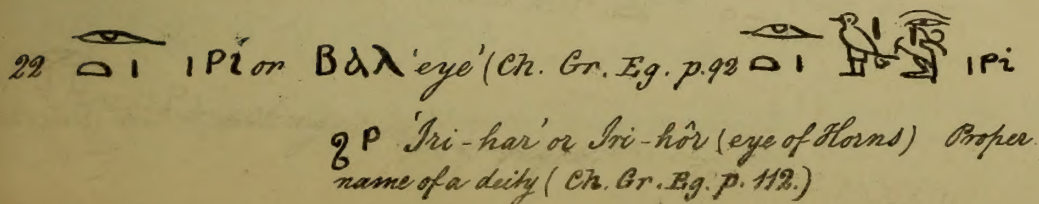 22 𓁹𓏏𓏤 ıPi or Bⲁⲗ 'eye' (Ch. Gr. Eg. p. 92 𓁹𓏏𓏤 ıPi
ϩP 'Iri-har' or Iri-hôr (eye of Horns) Proper
name of a deity (Ch. Gr. Eg. p. 112.)